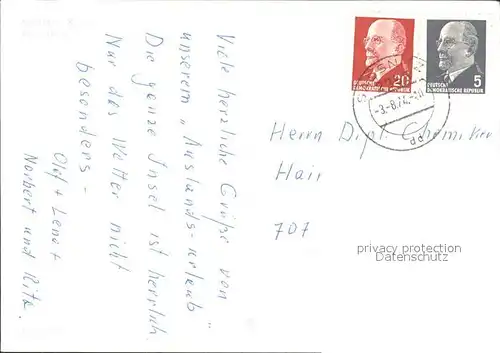 Viele herzliche Grüße von
unserem „Auslandsurlaub"
Die ganze Insel ist herrlich.
Nur das Wetter nicht
besonders -
Olaf + Lenot
Norbert und Rita
DEUTSCHE
DEMOKRATISCHE REPUBLIK
20
DEUTSCHE
DEMOKRATISCHE REPUBLIK
5
-3.-8.70
Herrn Dipl. Chemiker
Hair
707
privacy protection
Datenschutz